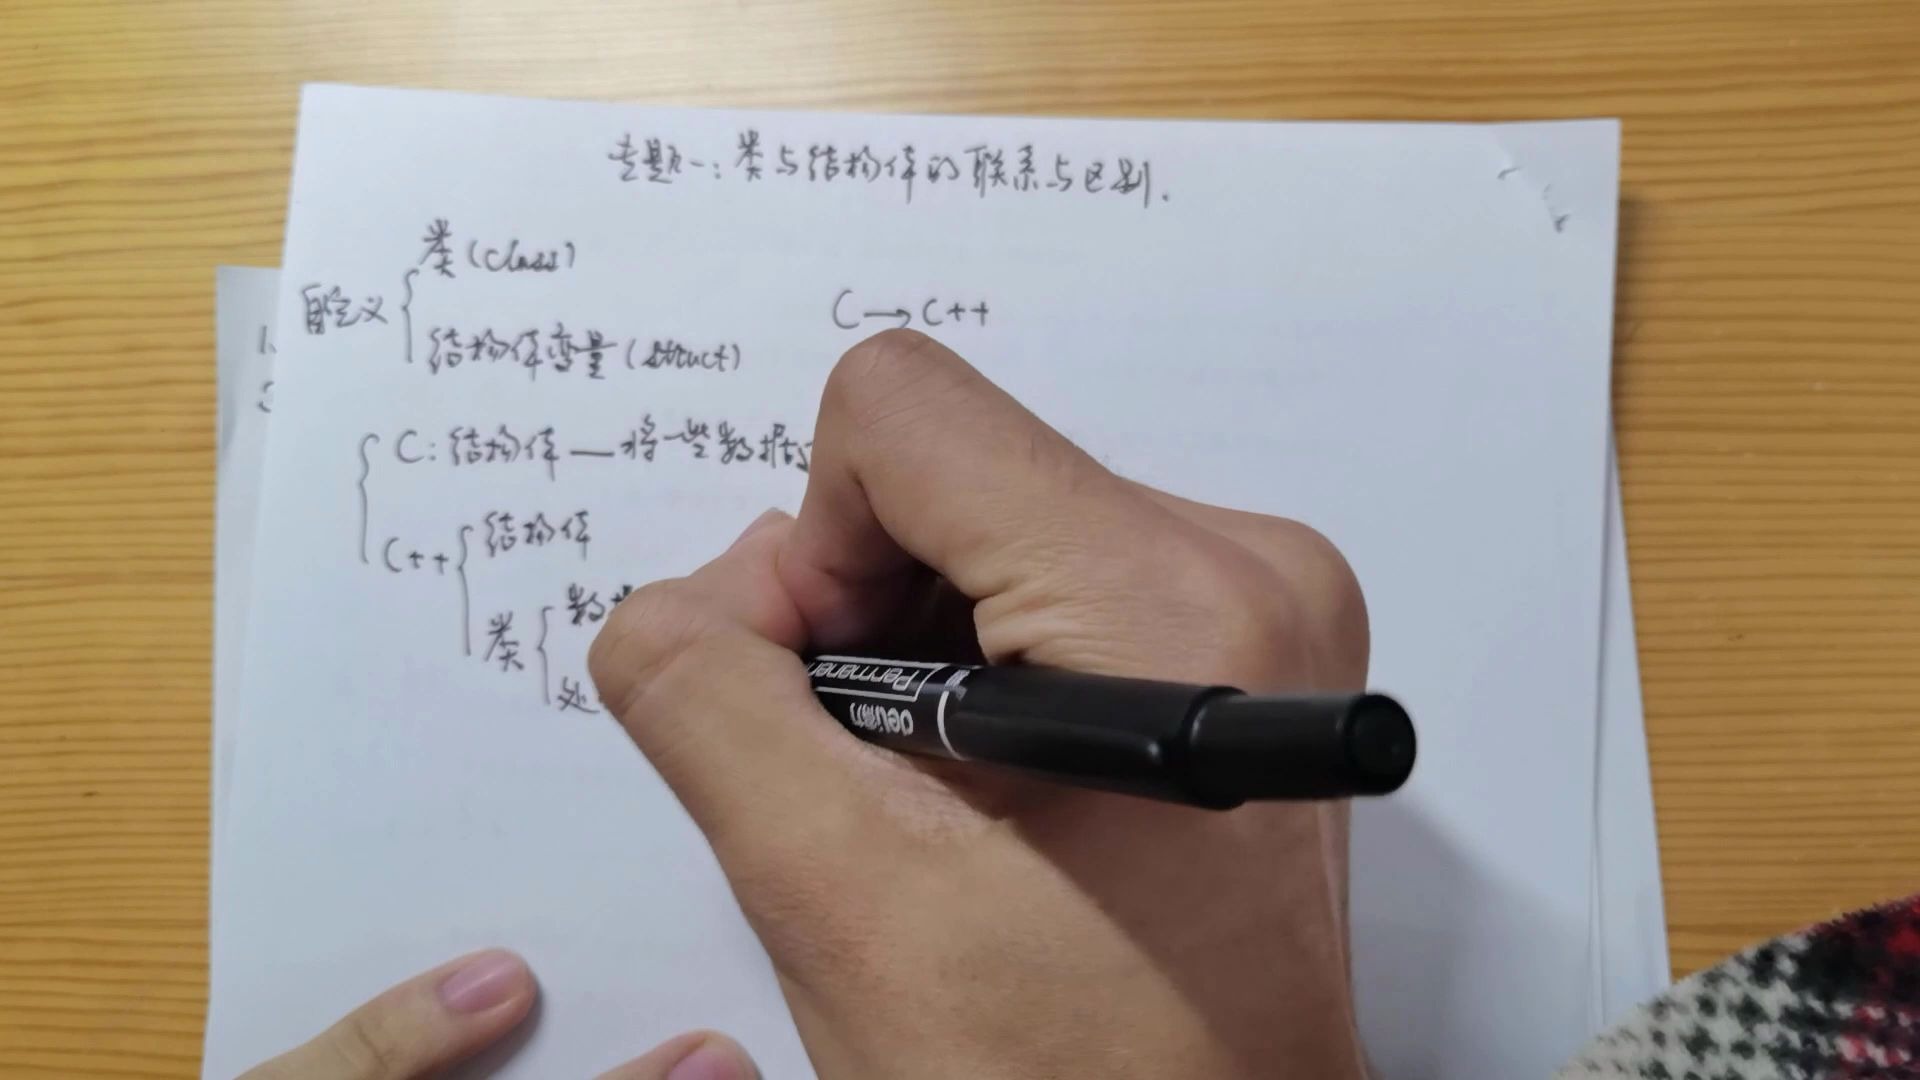 专题一：类与结构体的联系与区别.
类(class)
自定义
C→C++
结构体变量(struct)
C:结构体—将一些数据
结构体
C++
数据
类
处
Permanen
deli得力